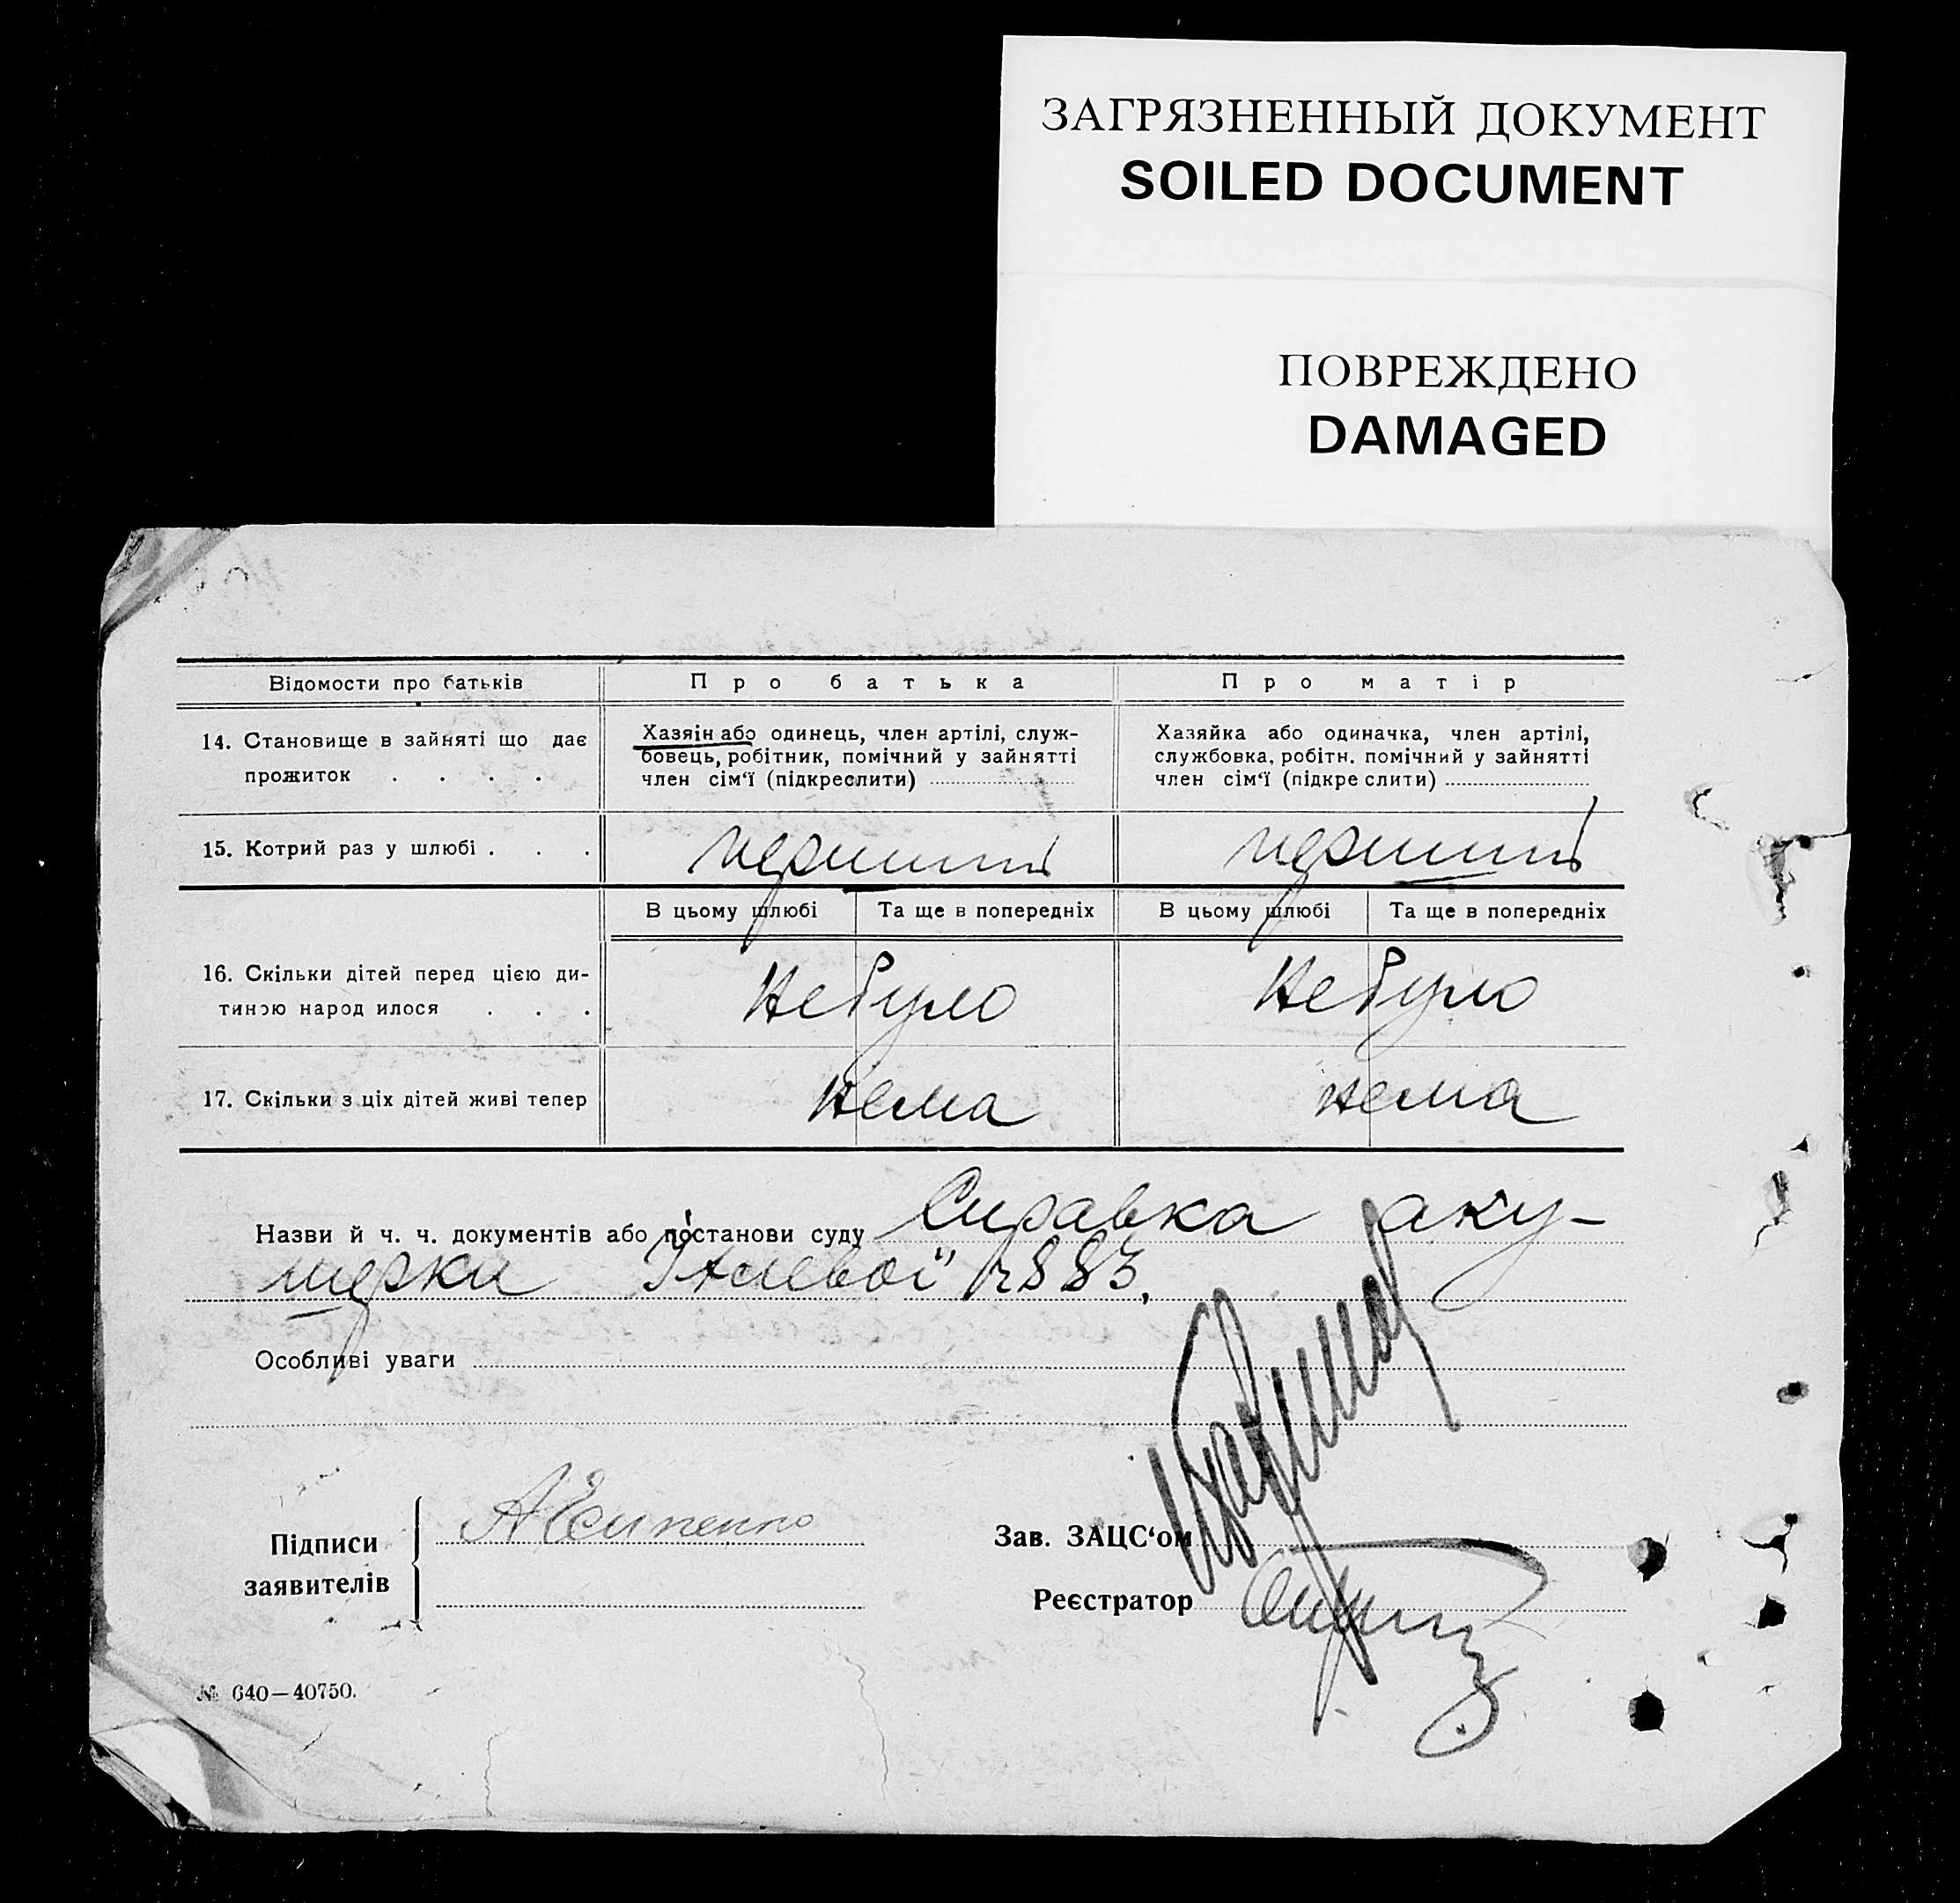 ЗАГРЯЗНЕННЫЙ ДОКУМЕНТ
SOILED DOCUMENT
ПОВРЕЖДЕНО
DAMAGED
Відомости про батьків
Про батька
Про матір
14. Становище в зайняті що дає
прожиток . . . .
Хазяін або одинець, член артілі, служ-
бовець, робітник, помічний у зайнятті
член сім‘ї (підкреслити)
Хазяйка або одиначка, член артілі,
службовка, робітн. помічний у зайнятті
член сім‘ї (підкре слити)
15. Котрий раз у шлюбі . . .
перший
перший
В цьому шлюбі
Та ще в попередніх
В цьому шлюбі
Та ще в попередніх
16. Скільки дітей перед цією ди-
тиною народ илося . . .
Небуло
Небуло
17. Скільки з ціх дітей живі тепер
нема
нема
Назви й ч. ч. документів або постанови суду Справка аку-
шерки 883,
Особливі уваги
Підписи
заявителів
Зав. ЗАЦС‘ом
Реєстратор
№ 640—40750.